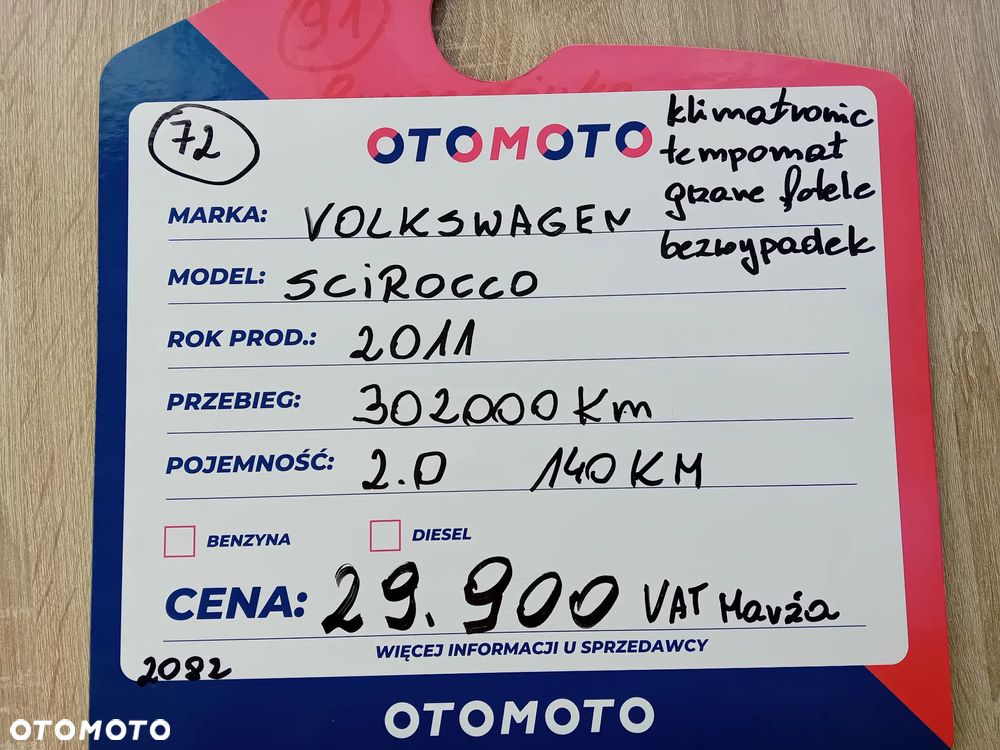 91
72
OTOMOTO
klimatronic
tempomat
grzane fotele
bezwypadek
MARKA: VOLKSWAGEN
MODEL: SCIROCCO
ROK PROD.: 2011
PRZEBIEG: 302000 Km
POJEMNOŚĆ: 2.0 140 KM
BENZYNA DIESEL
CENA: 29.900 VAT Marża
WIĘCEJ INFORMACJI U SPRZEDAWCY
2082
OTOMOTO
OTOMOTO